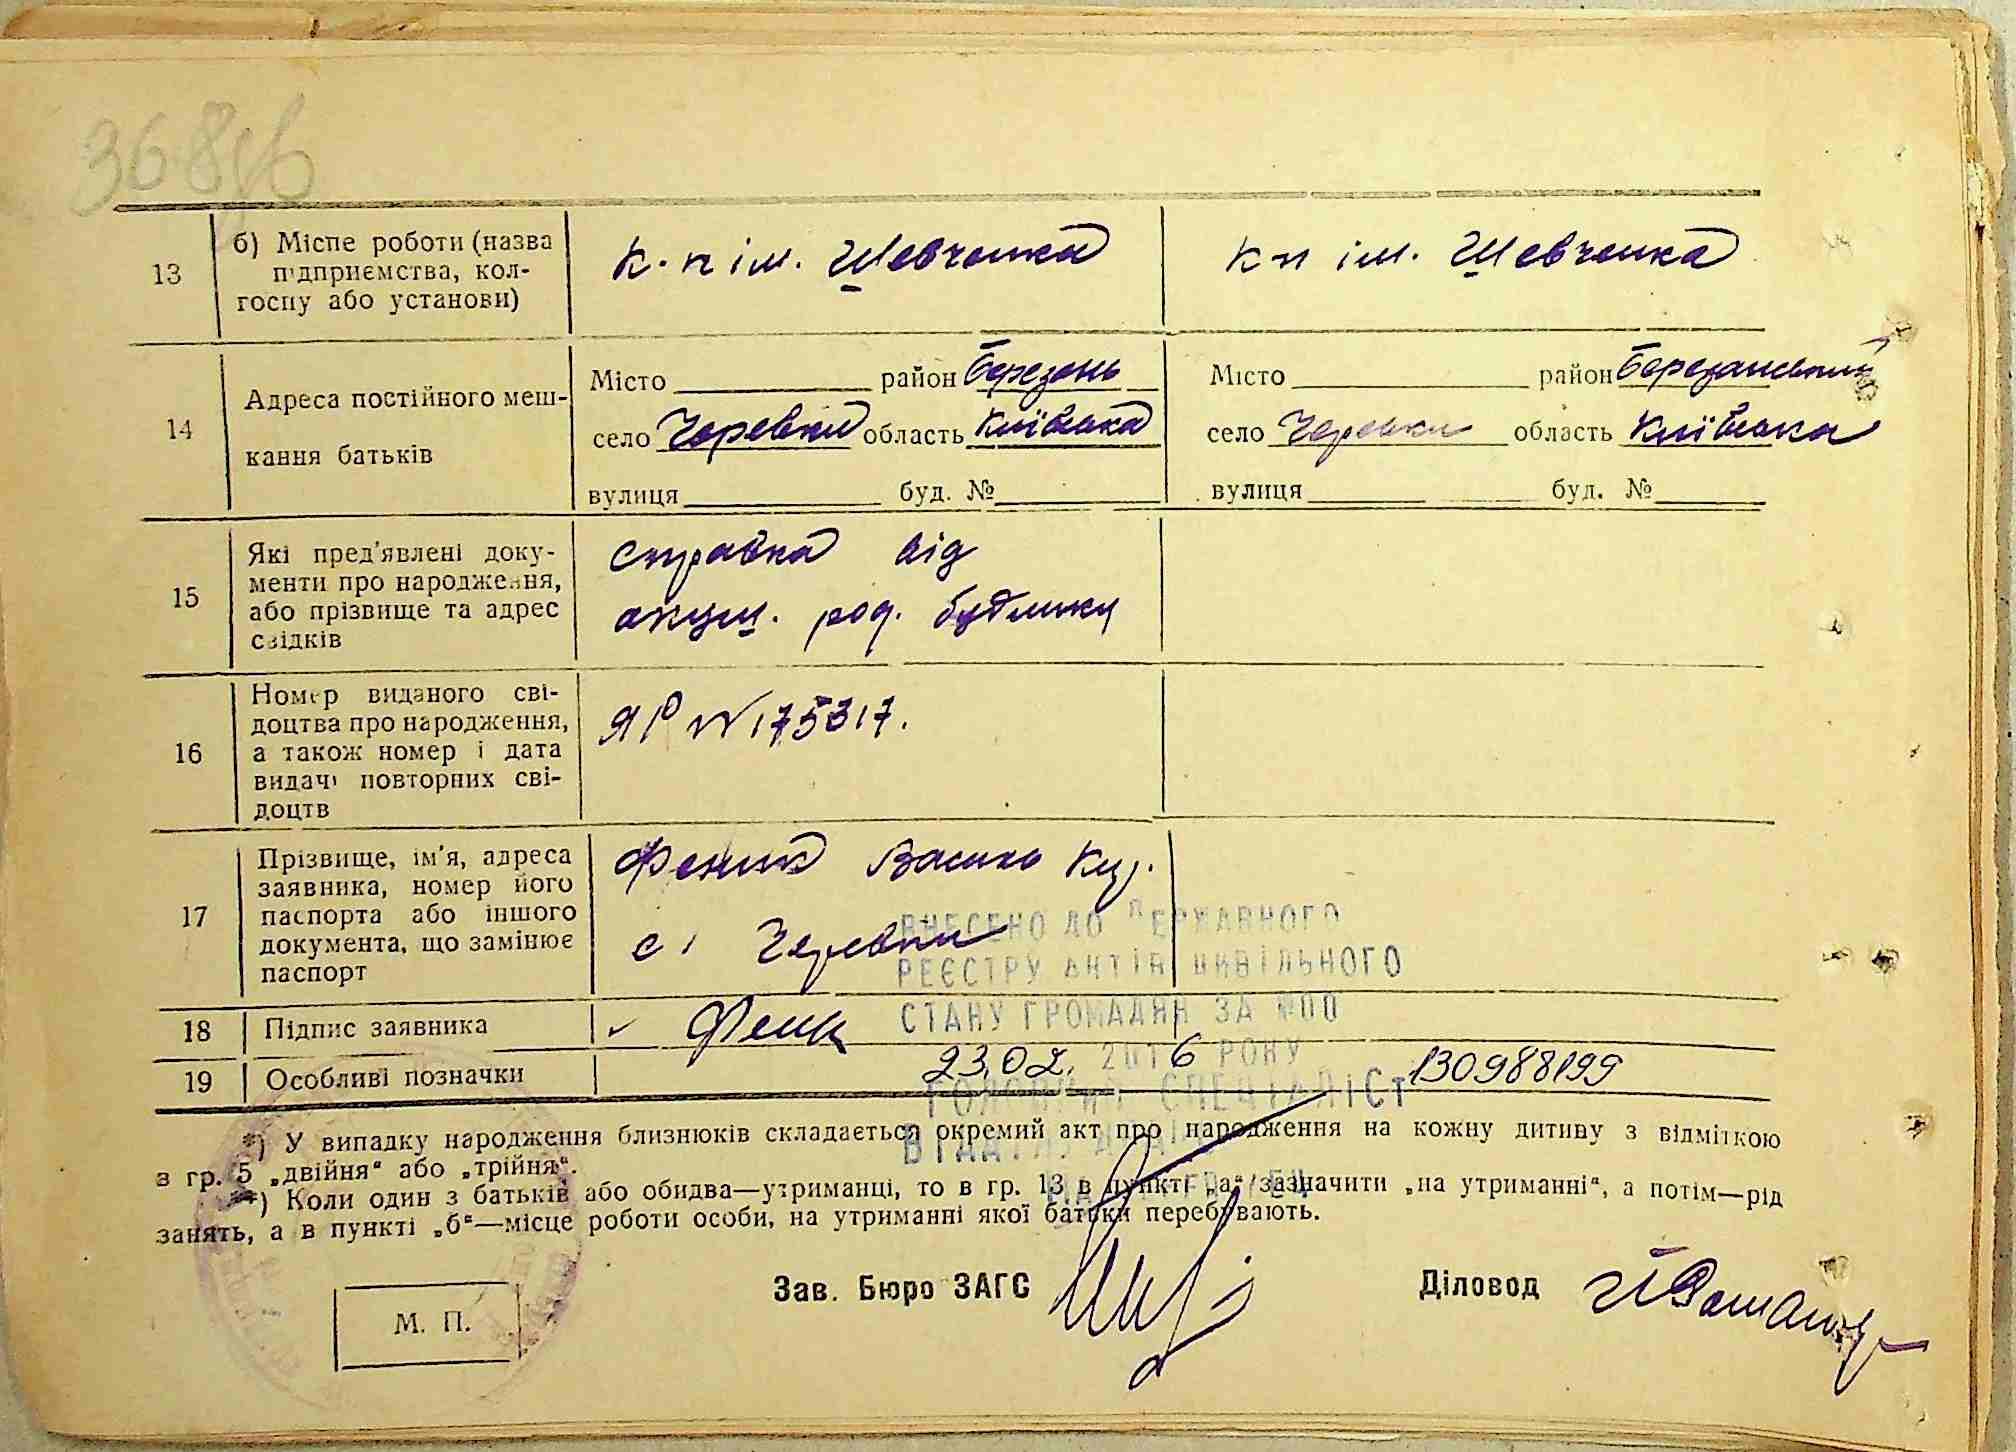 368
13
б) Місце роботи (назва
підприємства, кол-
госпу або установи)
к.п ім. Шевченка
кп ім. Шевченка
14
Адреса постійного меш-
кання батьків
Місто район Березань
село Черевки область Київська
вулиця буд. №
Місто район Березанський
село Черевки область Київська
вулиця буд. №
15
Які пред'явлені доку-
менти про народження,
або прізвище та адрес
свідків
справка від
акуш. род. будинку
16
Номер виданого сві-
доцтва про народження,
а також номер і дата
видачі повторних сві-
доцтв
ЯР N 175317.
17
Прізвище, ім'я, адреса
заявника, номер його
паспорта або іншого
документа, що замінює
паспорт
Феник Василь Куз.
с. Черевки
ВНЕСЕНО ДО ДЕРЖАВНОГО
РЕЄСТРУ АКТІВ ЦИВІЛЬНОГО
СТАНУ ГРОМАДЯН ЗА №00
18
Підпис заявника
Феник
23.02. 2016 РОКУ
130988199
19
Особливі позначки
ГОЛОВНИЙ СПЕЦІАЛІСТ
*) У випадку народження близнюків складається окремий акт про народження на кожну дитину з відміткою
в гр. 5 „двійня“ або „трійня“.
**) Коли один з батьків або обидва—утриманці, то в гр. 13 в пункті „а“ зазначити „на утриманні“, а потім—рід
занять, а в пункті „б“—місце роботи особи, на утриманні якої батьки перебувають.
Зав. Бюро ЗАГС
Діловод
М. П.